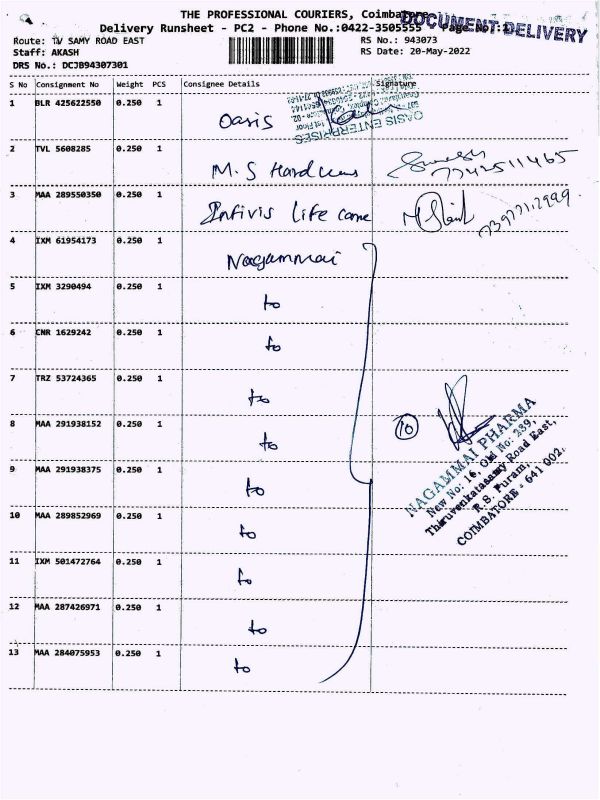 THE PROFESSIONAL COURIERS, Coimbatore
DOCUMENT DELIVERY
Delivery Runsheet - PC2 - Phone No.:0422-3505555 Page No:
Route: TV SAMY ROAD EAST RS No.: 943073
Staff: AKASH RS Date: 20-May-2022
DRS No.: DCJB94307301
S No Consignment No Weight PCS Consignee Details Signature
1 BLR 425622550 0.250 1 Oasis
OASIS ENTERPRISES
1st Floor
2 TVL 5608285 0.250 1 M.S
7742511465
3 MAA 289550350 0.250 1 Infivis Life care
4 IXM 61954173 0.250 1 Nagammai
5 IXM 3290494 0.250 1 to
6 CNR 1629242 0.250 1 to
7 TRZ 53724365 0.250 1 to
8 MAA 291938152 0.250 1 to
10
NAGAMMAI PHARMA
New No: 16, Old No: 239,
Thiruvenkatasamy Road East,
R.S. Puram,
COIMBATORE - 641 002.
9 MAA 291938375 0.250 1 to
10 MAA 289852969 0.250 1 to
11 IXM 501472764 0.250 1 to
12 MAA 287426971 0.250 1 to
13 MAA 284075953 0.250 1 to